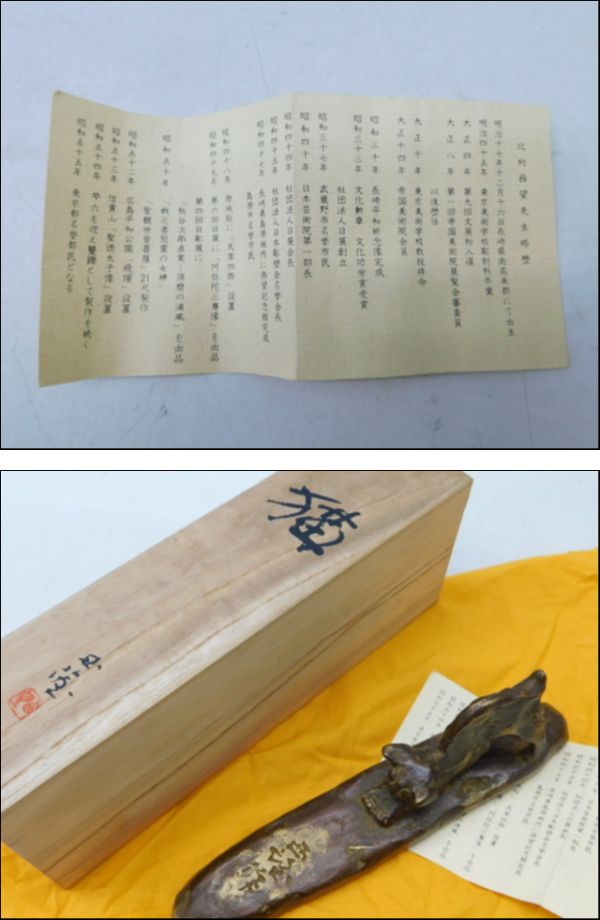 北村西望先生略歴
明治十七年十二月十六日長崎県南高来郡にて出生
明治四十五年 東京美術学校彫刻科卒業
大正四年 第九回文展初入選
大正八年 第一回帝国美術院展覧会審査員
以後歴任
大正十年 東京美術学校教授拝命
大正十四年 帝国美術院会員
昭和三十年 長崎平和祈念像完成
昭和三十三年 文化勲章 文化功労賞受賞
社団法人日展創立
昭和三十七年 武蔵野市名誉市民
昭和四十年 日本芸術院第一部長
昭和四十四年 社団法人日展会長
昭和四十五年 社団法人日本彫塑会名誉会長
昭和四十七年 長崎県島原城内に西望記念館完成
島原市名誉市民
昭和四十八年 原城趾に「天草四郎」設置
昭和四十九年 第六回日展に「阿弥陀三尊像」を出品
第四回日彫展に
「熊谷次郎直実、須磨の浦風」を出品
昭和五十年 「戦災者慰霊の女神」
「聖観世音菩薩」21尺製作
昭和五十二年 広島平和公園「飛躍」設置
昭和五十三年 信貴山「聖徳太子像」設置
昭和五十四年 卒六を迎え矍鑠として製作を続く
昭和五十五年 東京都名誉都民となる
猫
西望
西望作